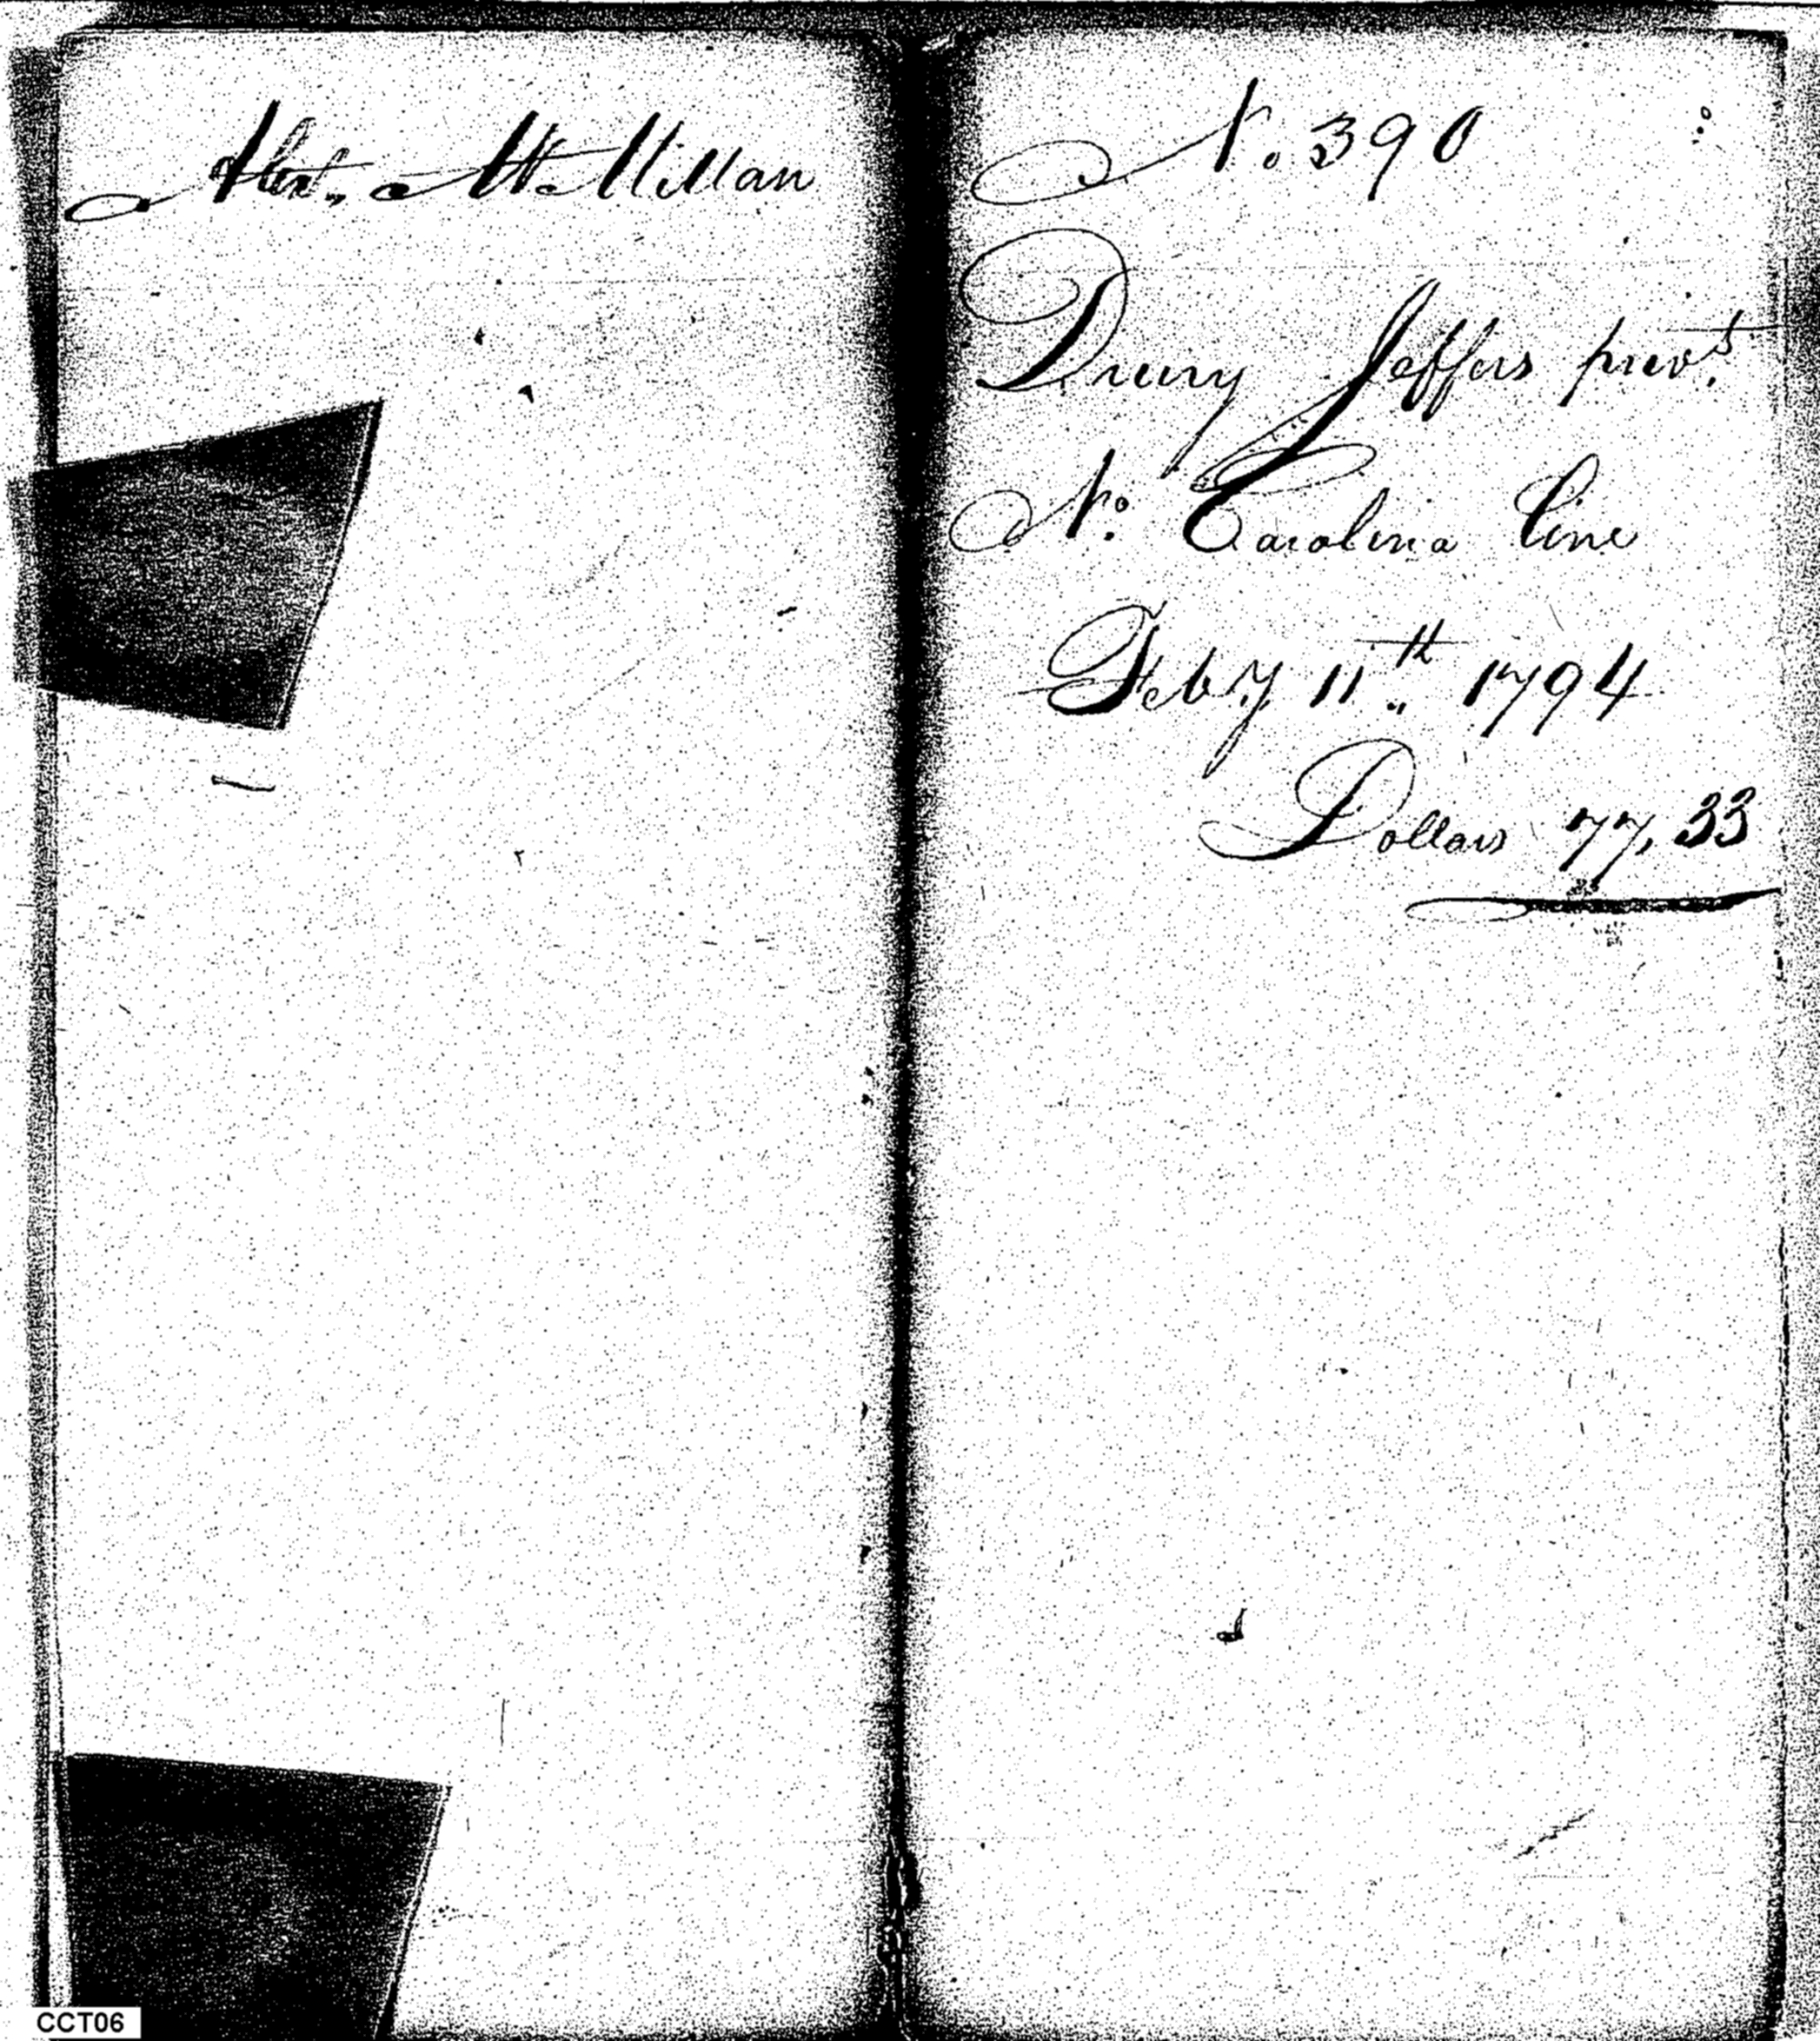 Alexr. McMillan
N. 390
Drury Jeffers privt.
No. Carolina line
Feby. 11th 1794
Dollars 77,33
CCT06